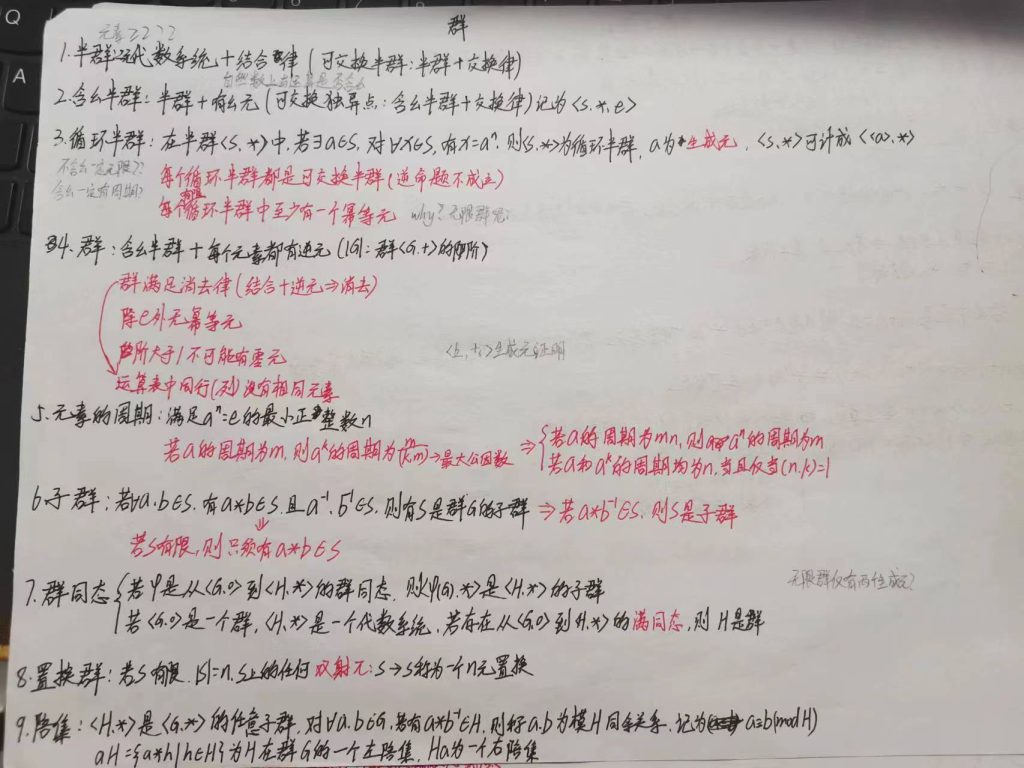 群
元素≥2??
1. 半群: 代数系统 + 结合律 (可交换半群: 半群 + 交换律)
2. 含幺半群: 半群 + 有幺元 (可交换独异点: 含幺半群 + 交换律) 记为 <S,*,e>
3. 循环半群: 在半群<S,*>中, 若∃a∈S, 对∀x∈S, 有x=aⁿ, 则<S,*>为循环半群, a为生成元, <S,*>可计成<<a>,*>
不含幺一定无限??
含幺一定有周期?
每个循环半群都是可交换半群(逆命题不成立)
每个循环半群中至少有一个幂等元 why? 无限群呢?
4. 群: 含幺半群 + 每个元素都有逆元 (|G|: 群<G,*>的阶)
群满足消去律 (结合+逆元⇒消去)
除e外无幂等元
阶大于1不可能有零元 生成元证明
运算表中同行(列)没有相同元素
5. 元素的周期: 满足aⁿ=e的最小正整数n
若a的周期为m, 则aᵏ的周期为m/(k,m) → 最大公因数 ⇒ {若a的周期为mn, 则aⁿ的周期为m
若a和aᵏ的周期均为n, 当且仅当(n,k)=1
6. 子群: 若∀a,b∈S, 有a*b∈S, 且a⁻¹,b⁻¹∈S, 则有S是群G的子群 ⇒ 若a*b⁻¹∈S, 则S是子群
⇓
若S有限, 则只须有a*b∈S
无限群仅有两个生成元?
7. 群同态 {若φ是从<G,∘>到<H,*>的群同态, 则<φ(G),*>是<H,*>的子群
若<G,∘>是一个群, <H,*>是一个代数系统, 若存在从<G,∘>到<H,*>的满同态, 则H是群
8. 置换群: 若S有限, |S|=n, S上的任何双射π: S→S称为一个n元置换
9. 陪集: <H,*>是<G,*>的任意子群, 对∀a,b∈G, 若有a*b⁻¹∈H, 则称a,b为模H同余关系, 记为 a≡b(mod H)
aH={a*h|h∈H}为H在群G的一个左陪集, Ha为一个右陪集